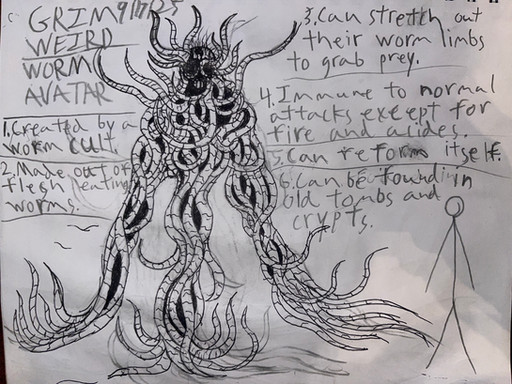 GRIM 9/17/25
WEIRD
WORM
AVATAR
1. Created by a
worm cult.
2. Made out of
flesh eating
worms.
3. Can stretch out
their worm limbs
to grab prey.
4. Immune to normal
attacks except for
fire and acides.
5. Can reform itself.
6. Can be found in
old tombs and
crypts.